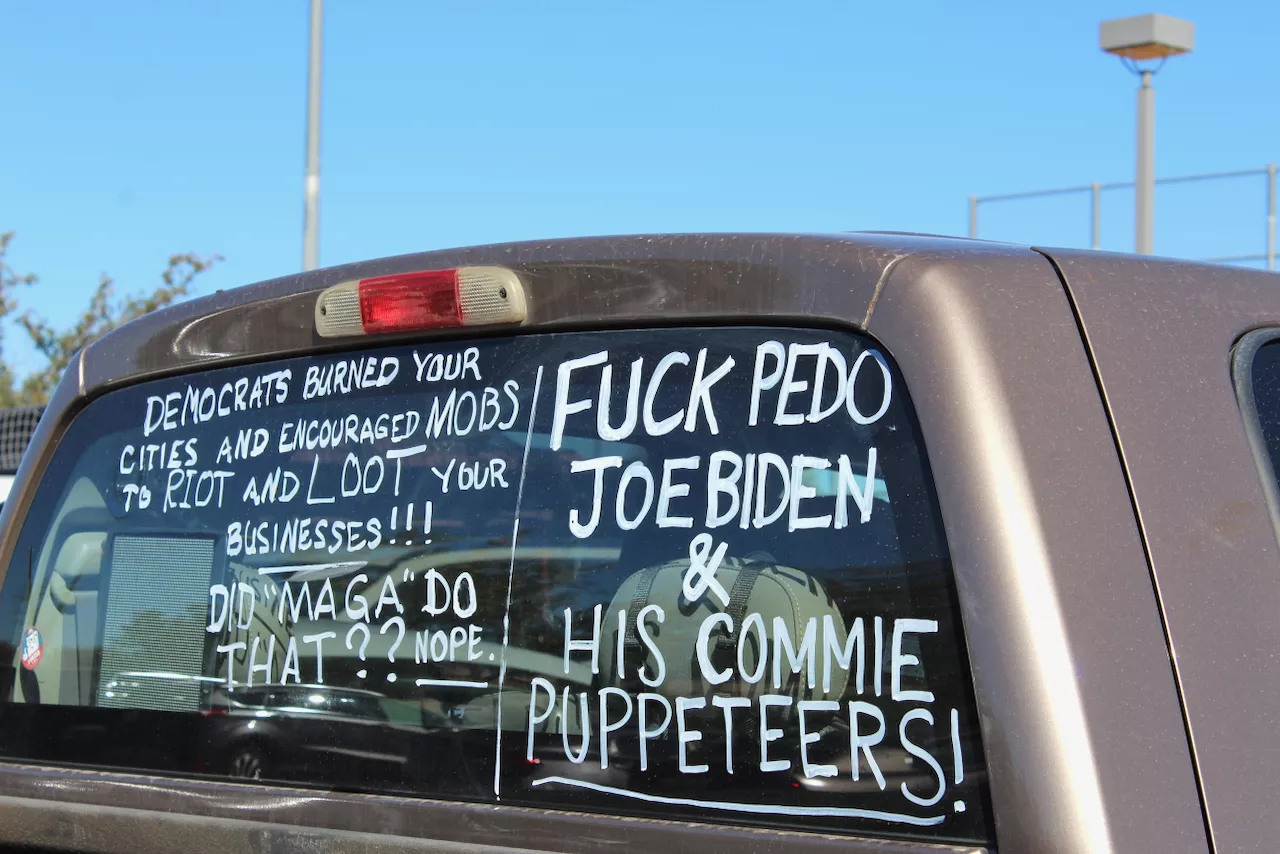 DEMOCRATS BURNED YOUR
CITIES AND ENCOURAGED MOBS
TO RIOT AND LOOT YOUR
BUSINESSES!!!
DID "MAGA" DO
THAT?? NOPE.
FUCK PEDO
JOE BIDEN
&
HIS COMMIE
PUPPETEERS!